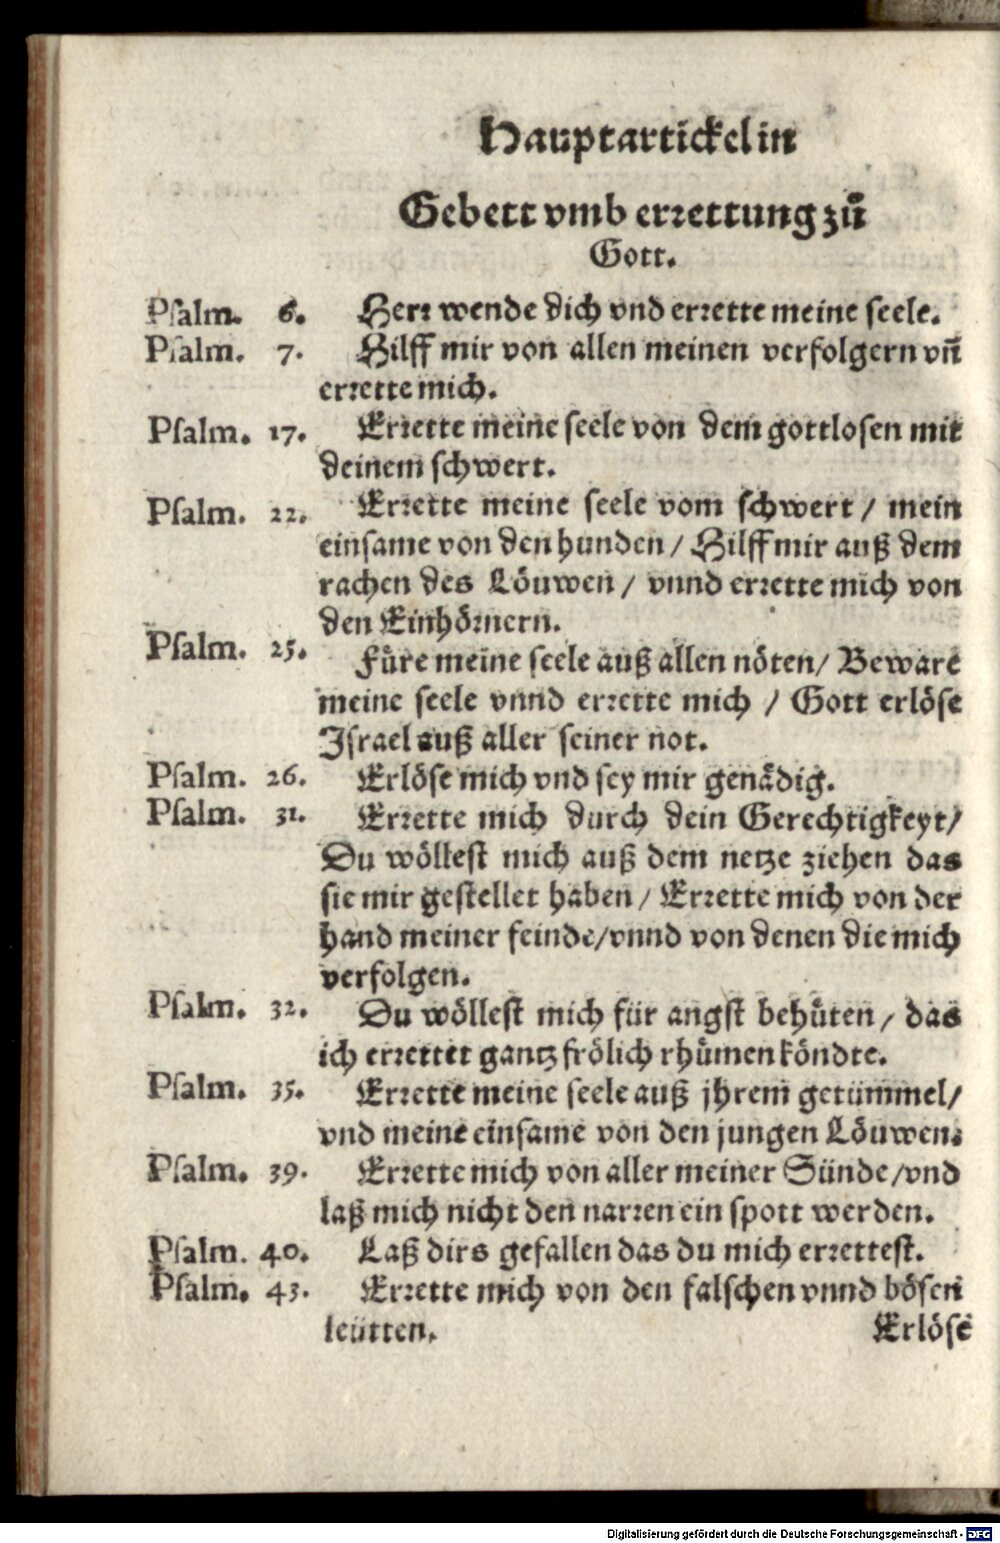 Hauptartickel in
Gebett vmb errettung zů
Gott.
Psalm. 6. Herr wende dich vnd errette meine seele.
Psalm. 7. Hilff mir von allen meinen verfolgern vñ
errette mich.
Psalm. 17. Errette meine seele von dem gottlosen mit
deinem schwert.
Psalm. 22. Errette meine seele vom schwert / mein
einsame von den hunden / Hilff mir auß dem
rachen des Löuwen / vnnd errette mich von
den Einhörnern.
Psalm. 25. Füre meine seele auß allen nöten / Beware
meine seele vnnd errette mich / Gott erlöse
Israel auß aller seiner not.
Psalm. 26. Erlöse mich vnd sey mir genädig.
Psalm. 31. Errette mich durch dein Gerechtigkeyt /
Du wöllest mich auß dem netze ziehen das
sie mir gestellet haben / Errette mich von der
hand meiner feinde / vnnd von denen die mich
verfolgen.
Psalm. 32. Du wöllest mich für angst behüten / das
ich errettet gantz frölich rhümen köndte.
Psalm. 35. Errette meine seele auß jhrem getümmel /
vnd meine einsame von den jungen Löuwen.
Psalm. 39. Errette mich von aller meiner Sünde / vnd
laß mich nicht den narren ein spott werden.
Psalm. 40. Laß dirs gefallen das du mich errettest.
Psalm. 43. Errette mich von den falschen vnnd bösen
leütten. Erlöse
Digitalisierung gefördert durch die Deutsche Forschungsgemeinschaft - DFG